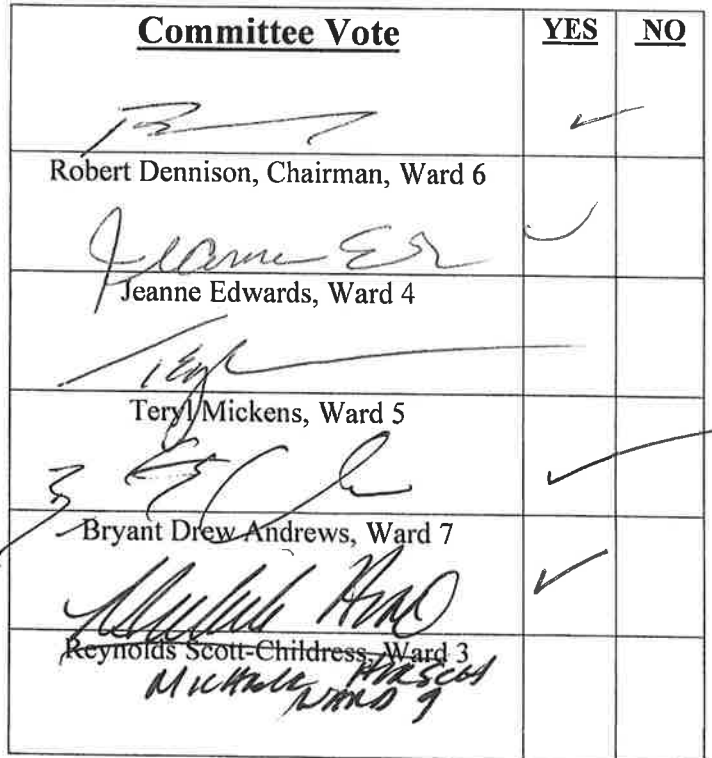 Committee Vote YES NO
Robert Dennison, Chairman, Ward 6
Jeanne
Jeanne Edwards, Ward 4
Teryl Mickens, Ward 5
Bryant Drew Andrews, Ward 7
Reynolds Scott-Childress, Ward 3
MICHELE
WARD 9